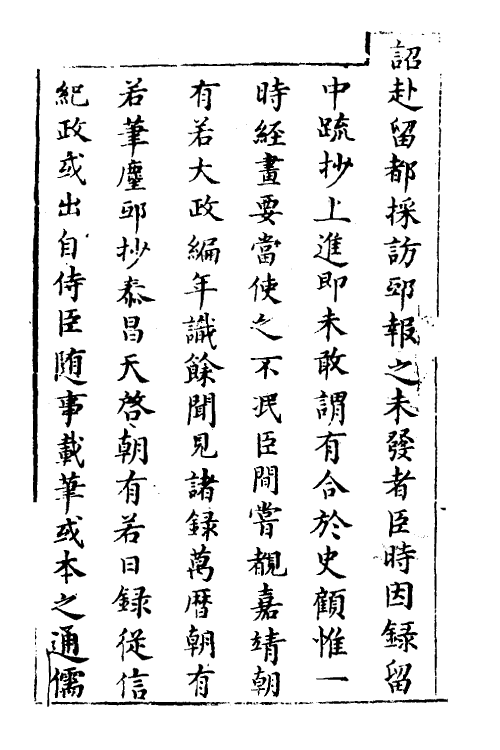 詔赴留都採訪邸報之未發者臣時因錄留
中疏抄上進即未敢謂有合於史顧惟一
時經畫要當使之不泯臣間嘗覩嘉靖朝
有若大政編年識餘聞見諸錄萬曆朝有
若筆麈邸抄泰昌天啓朝有若日錄從信
紀政或出自侍臣随事載筆或本之通儒